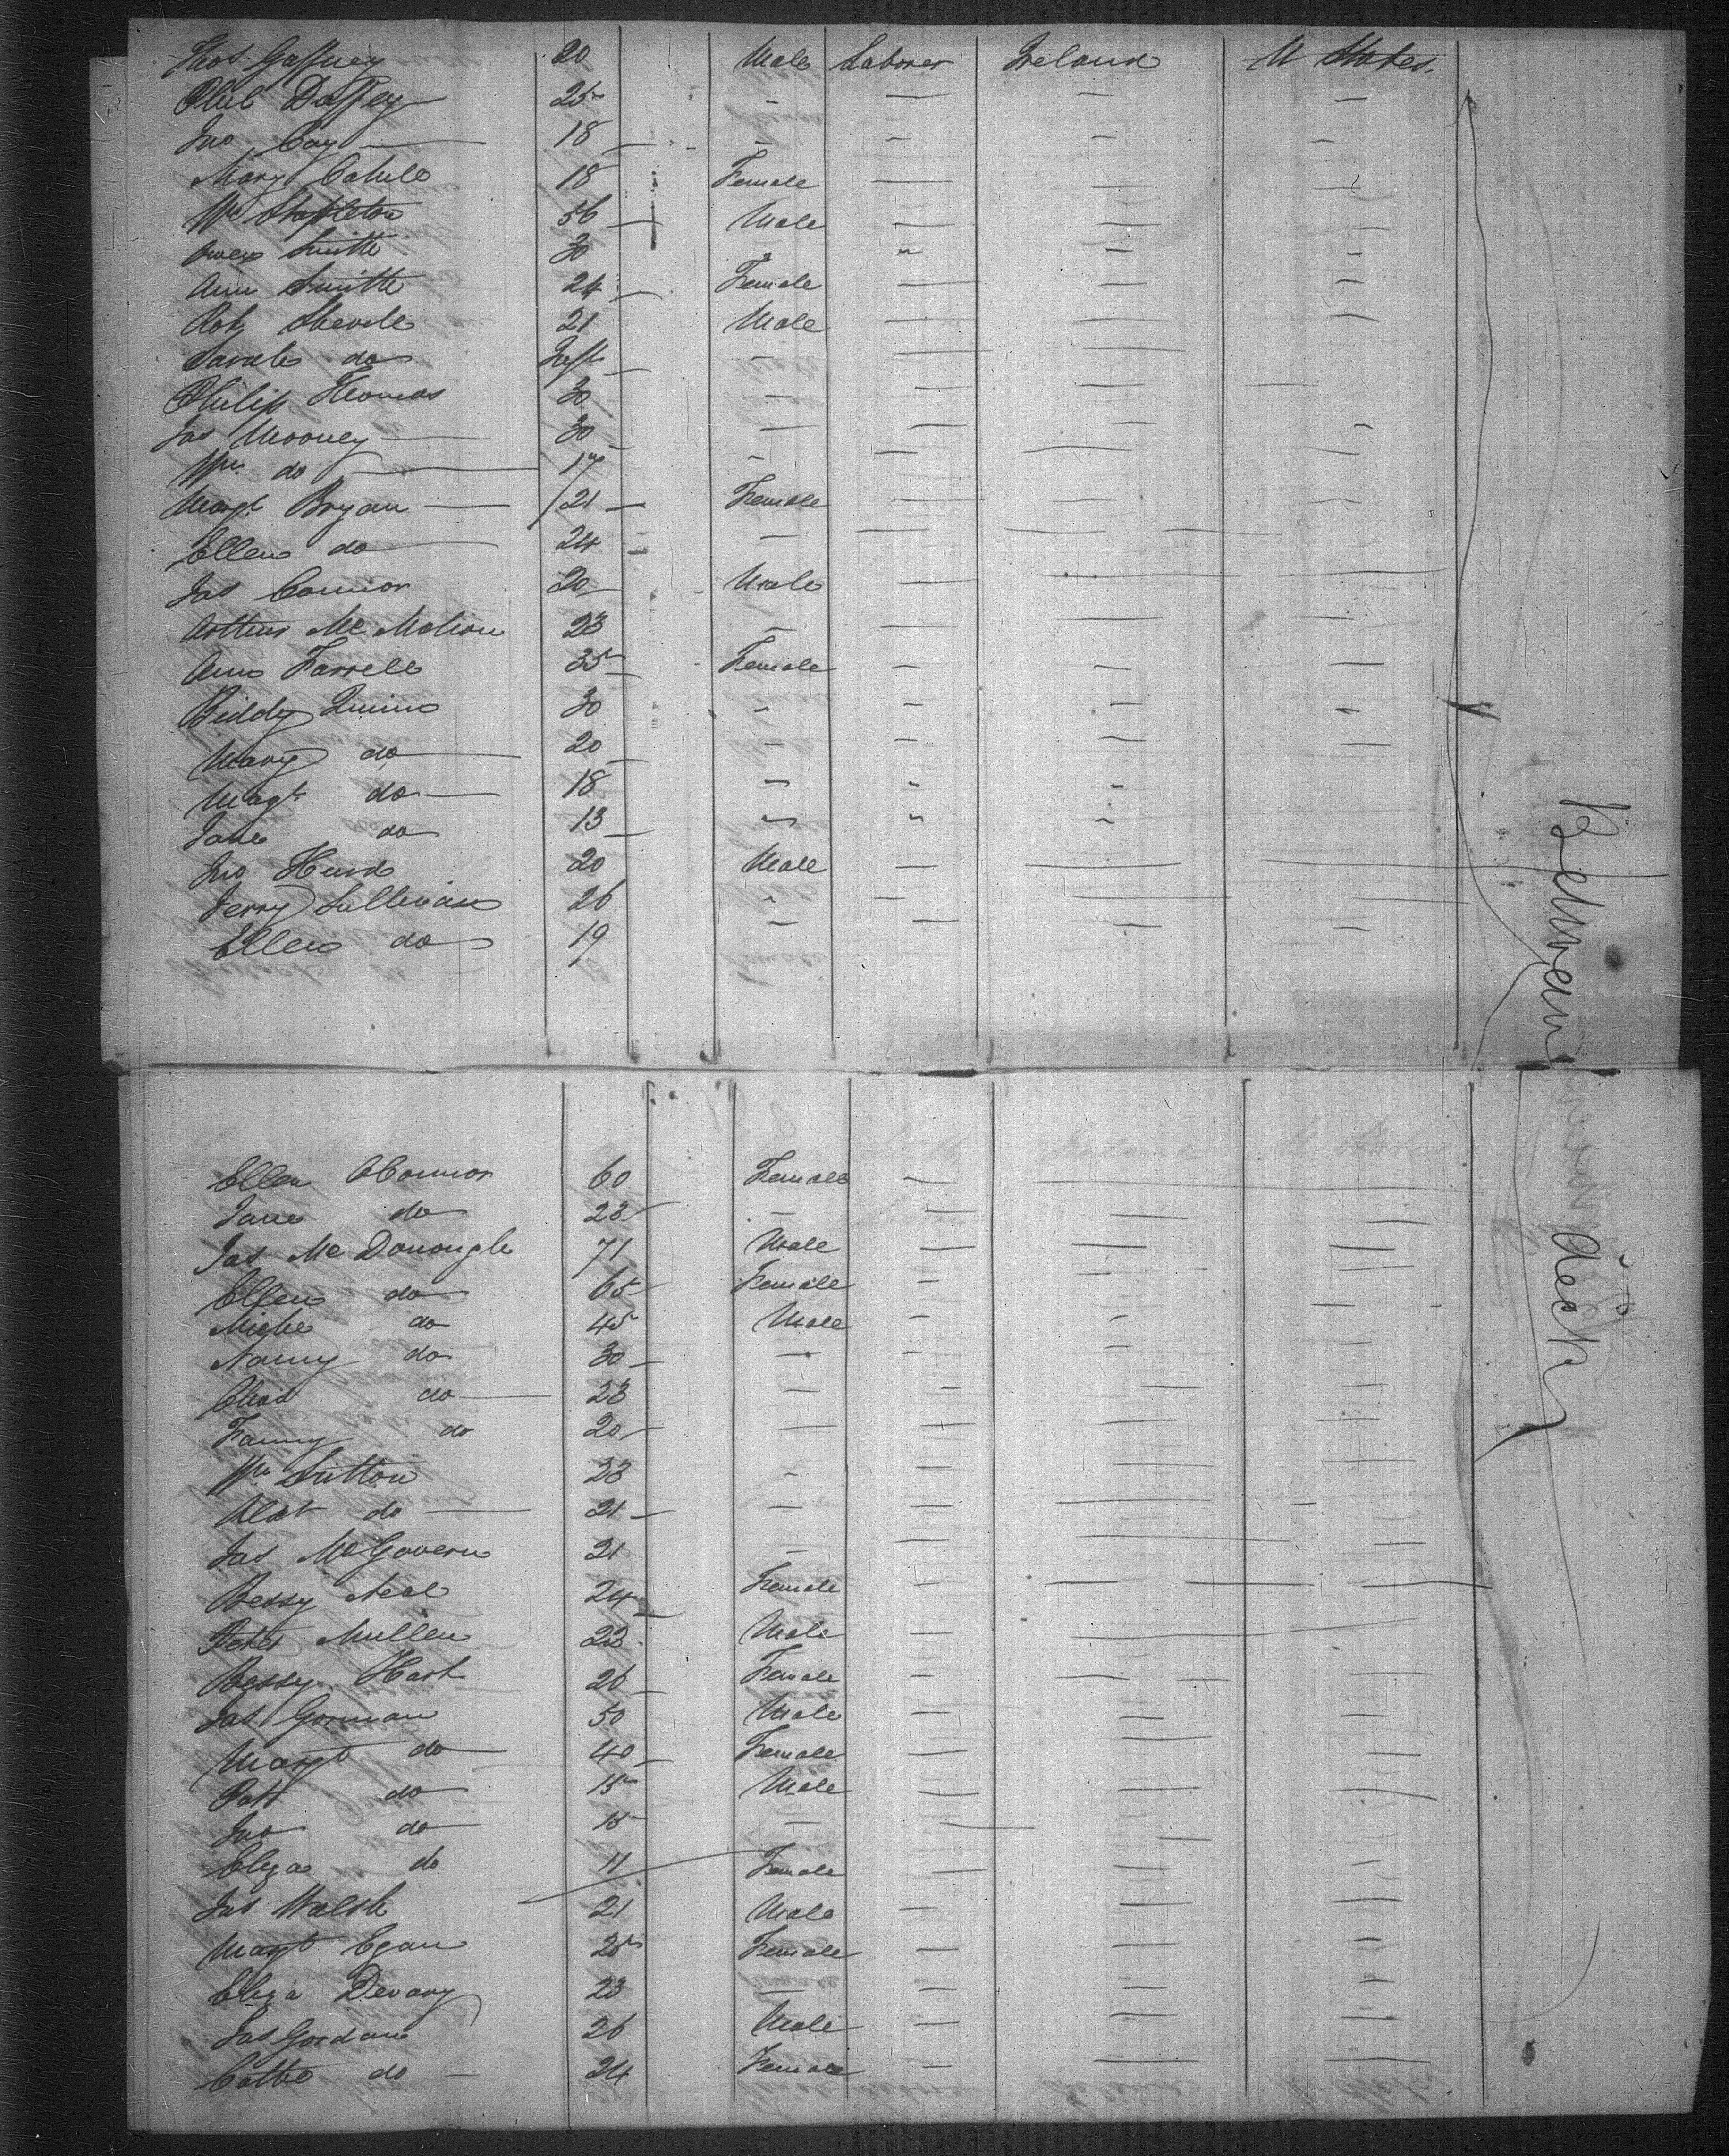 Thos Gaffney 20 Male Laborer Ireland U States.
Phil Duffey 25 — — — —
Jno Coy 18 — — — —
Mary Cahill 18 Female — — —
Wm Stapleton 56 Male — — —
Owen Smith 30 " — —
Ann Smith 24 Female — — —
Male — — —
Sarah do Inft — — —
Philip Thomas 30 — — — —
Jas Mooney 30 — — — —
Wm do 17 — — — —
Margt Bryan 21 Female — — —
Ellen do 24 — — — —
Jas Connor 20 Male — — —
Arthur McMahon 23 — — — —
Ann Farrell 35 Female — — —
Biddy Quinn 30 " — — —
Mary do 20 — — — —
Magt do 18 " " "
Jane do 13 " " "
Jno Hurd 20 Male — — —
Jerry Sullivan 26 " — — —
Ellen do 19 — — — —
Between deck
Ellen OConnor 60 Female — — —
Jane do 23 — — — —
Jas McDonough 71 Male — — —
Ellen do 65 Female — — —
Michl do 45 Male — — —
Nanny do 30 — — — —
Chas do 23 — — — —
Fanny do 20 — — — —
Wm Sutton 23 — — — —
do 21 — — — —
Jas McGovern 21 — — — —
Bessy Neal 24 Female — — —
Peter Mullen 23 Male — — —
Bessy Hart 26 Female — — —
Jas Gorman 50 Male — — —
Margt do 40 Female — — —
Patt do 15 Male — — —
Jno do 15 — — — —
Eliza do 11 Female — — —
Jas Walsh 21 Male — — —
Margt Egan 25 Female — — —
Eliza Devany 23 — — — —
Jas Gordan 26 Male — — —
Cathe do 24 Female — — —